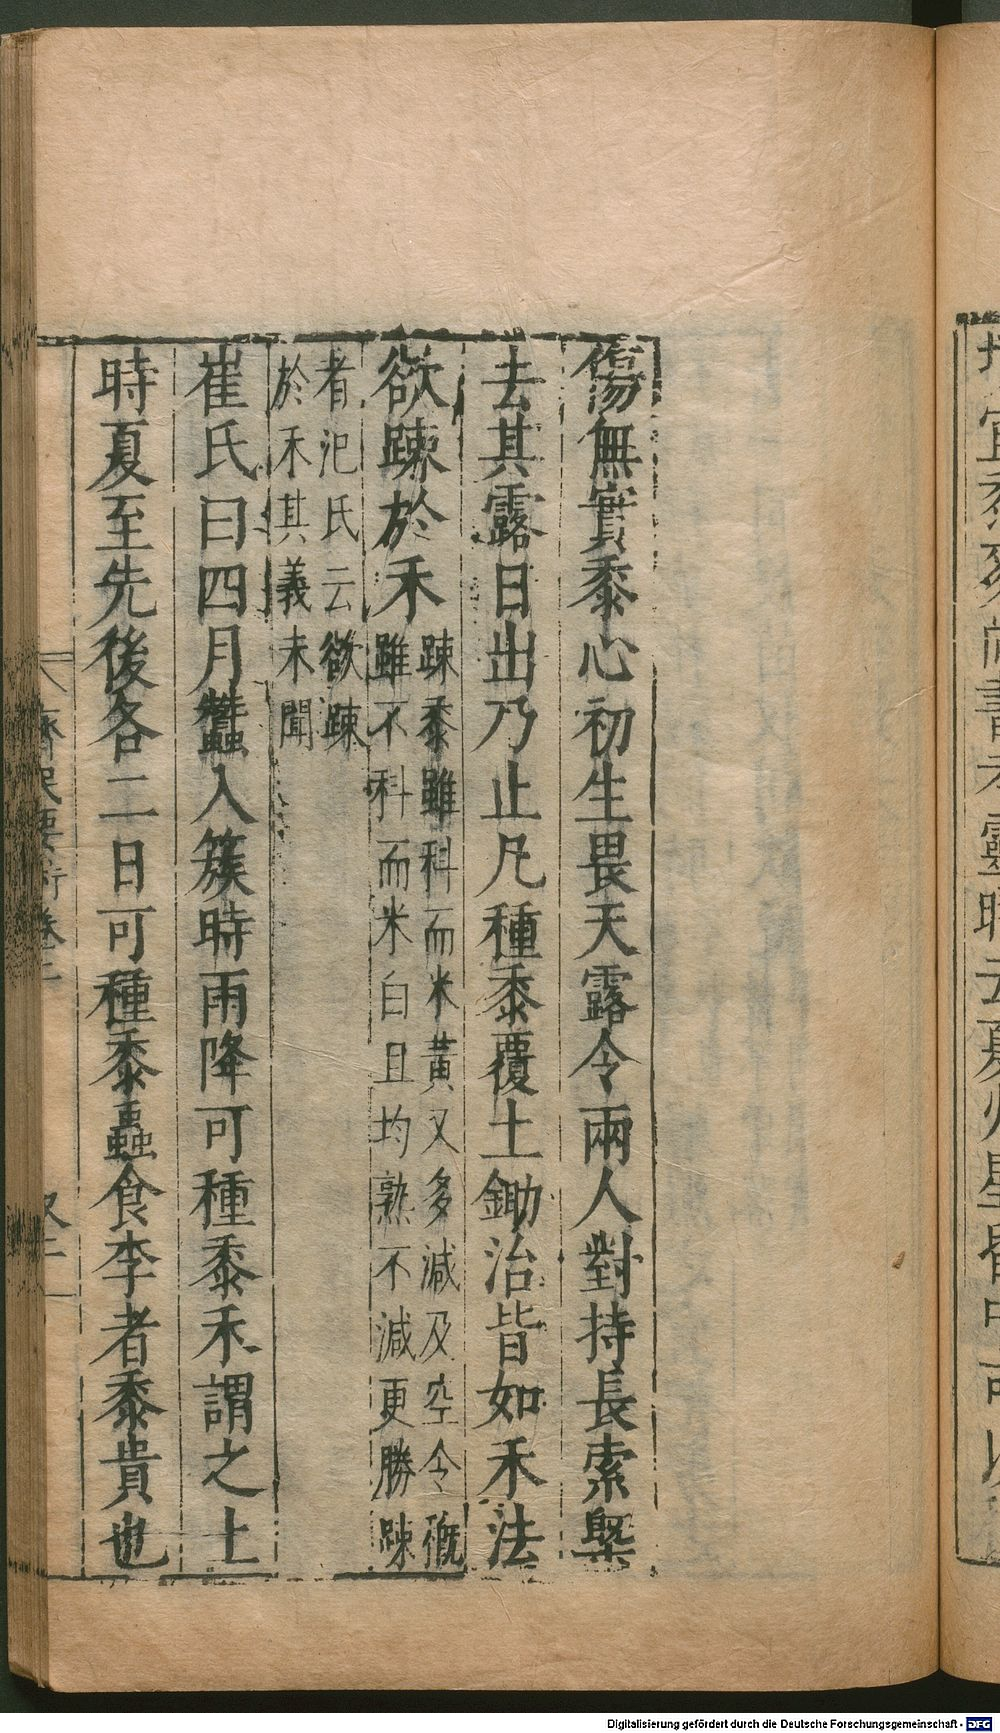 傷無實黍心初生畏天露令兩人對持長索槩
去其露日出乃止凡種黍覆土鋤治皆如禾法
欲踈於禾
踈黍雖科而米黃又多減及空令穊
雖不科而米白且均熟不減更勝踈
者氾氏云欲踈
於禾其義未聞
崔氏曰四月蠶入簇時雨降可種黍禾謂之上
時夏至先後各二日可種黍蟲食李者黍貴也
齊民要術卷二
Digitalisierung gefördert durch die Deutsche Forschungsgemeinschaft - DFG